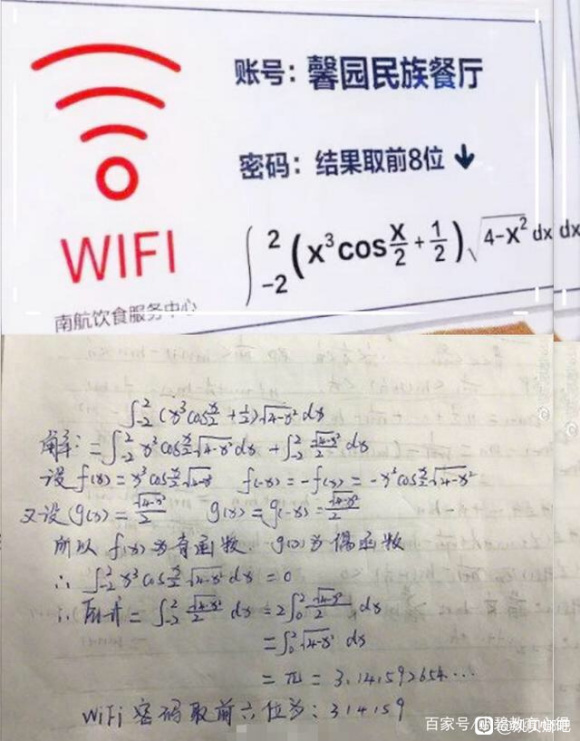 账号：馨园民族餐厅
密码：结果取前8位 ↓
∫₋₂² (x³cos x/2 + 1/2) √(4-x²) dx dx
WIFI
南航饮食服务中心
∫₋₂² (x³cos x/2 + 1/2) √(4-x²) dx
解：= ∫₋₂² x³cos x/2 √(4-x²) dx + ∫₋₂² √(4-x²)/2 dx
设 f(x) = x³cos x/2 √(4-x²)  f(-x) = -f(x) = -x³cos x/2 √(4-x²)
又设 g(x) = √(4-x²)/2  g(x) = g(-x) = √(4-x²)/2
所以 f(x)为奇函数. g(x)为偶函数
∴ ∫₋₂² x³cos x/2 √(4-x²) dx = 0
∴ 原式 = ∫₋₂² √(4-x²)/2 dx = 2∫₀² √(4-x²)/2 dx
= ∫₀² √(4-x²) dx
= π = 3.141592654...
WiFi 密码取前六位为：314159
百家号/